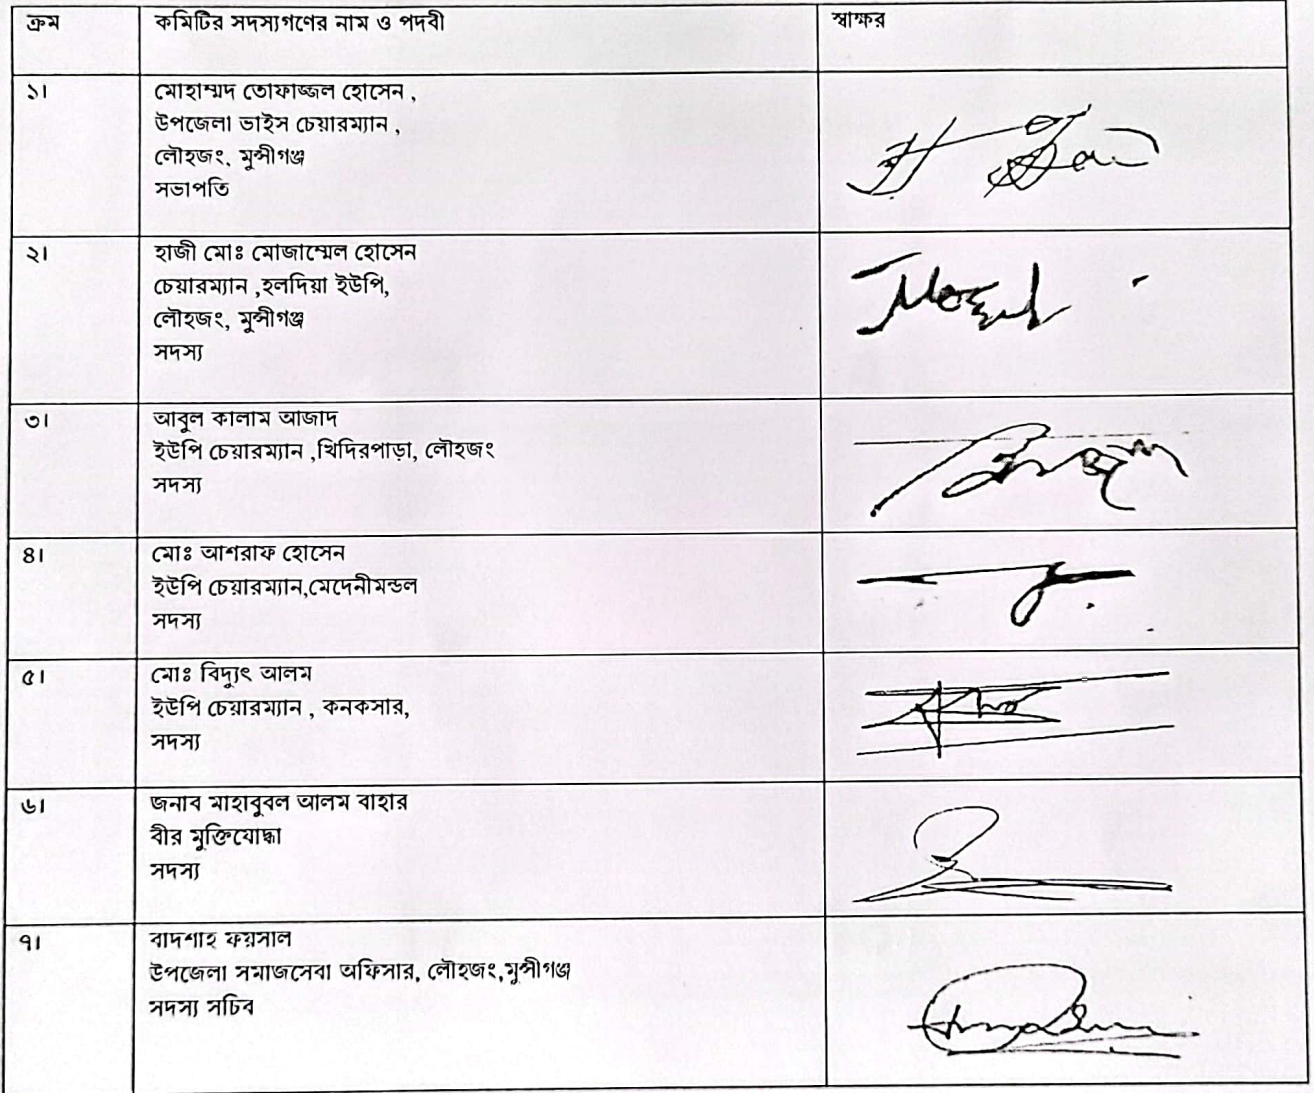 ক্রম কমিটির সদস্যগণের নাম ও পদবী স্বাক্ষর
১। মোহাম্মদ তোফাজ্জল হোসেন ,
উপজেলা ভাইস চেয়ারম্যান ,
লৌহজং, মুন্সীগঞ্জ
সভাপতি
২। হাজী মোঃ মোজাম্মেল হোসেন
চেয়ারম্যান ,হলদিয়া ইউপি,
লৌহজং, মুন্সীগঞ্জ
সদস্য
৩। আবুল কালাম আজাদ
ইউপি চেয়ারম্যান ,খিদিরপাড়া, লৌহজং
সদস্য
৪। মোঃ আশরাফ হোসেন
ইউপি চেয়ারম্যান,মেদেনীমন্ডল
সদস্য
৫। মোঃ বিদ্যুৎ আলম
ইউপি চেয়ারম্যান , কনকসার,
সদস্য
৬। জনাব মাহাবুবল আলম বাহার
বীর মুক্তিযোদ্ধা
সদস্য
৭। বাদশাহ ফয়সাল
উপজেলা সমাজসেবা অফিসার, লৌহজং,মুন্সীগঞ্জ
সদস্য সচিব